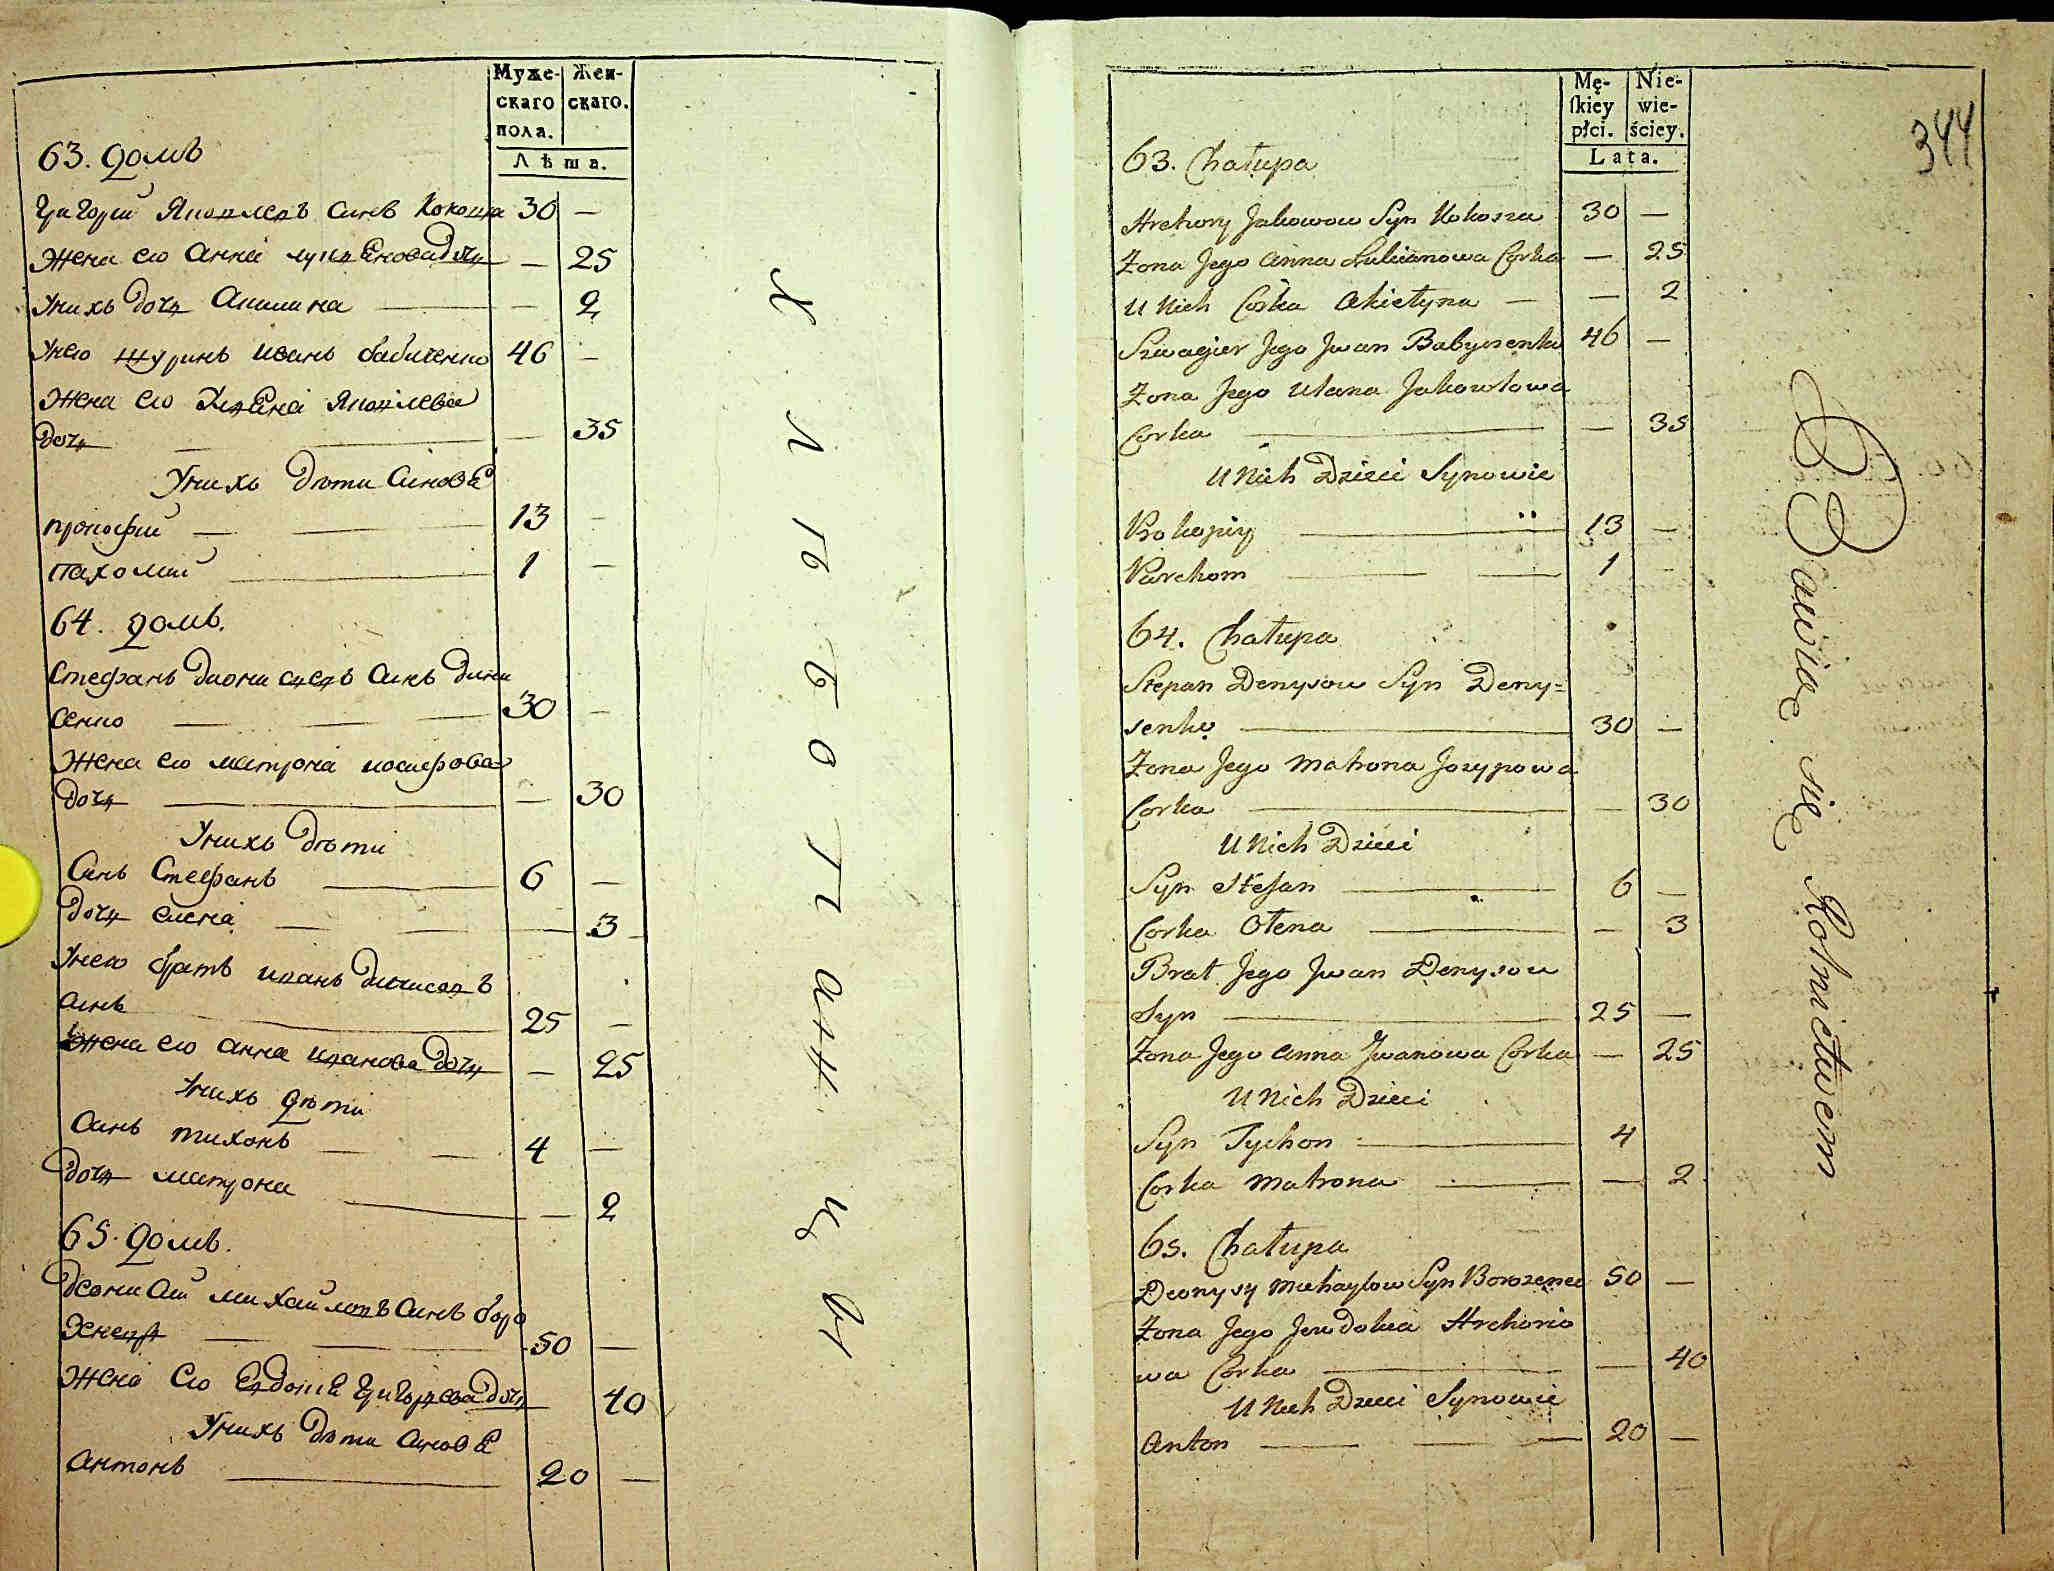 Муже-
скаго
пола.
Жен-
скаго.
Лѣта.
63. домъ
Григорий Яковлевъ синъ Кокоша 30 —
Жена его Анна лукъяновадочь — 25
Унихъ дочь Акилина — 2
Унего шуринъ иванъ бабиченко 46 —
Жена его Улѣяна Яковлева
дочь — 35
Унихъ дѣти Синовѣ
прокофий — 13 —
Пахомий 1 —
64. домъ.
Стефанъ дионисиевъ синъ дени
сенко — 30 —
Жена его матрона иосифова
дочь — 30
Унихъ дѣти
Синъ Стефанъ 6 —
дочь елена — 3
Унего братъ иванъ денисовъ
синъ 25 —
Жена его анна иванова дочь — 25
Унихъ дѣти
Синъ тихонъ — 4 —
дочь матрона — 2
65. домъ.
деониси михайловъ синъ боро
50 —
Жена его Евдокиѣ григорьева дочь 40
Унихъ дѣти синовѣ
антонъ 20 —
Хлѣбопашци
344
Mę-
skiey
płci.
Nie-
wie-
ściey.
Lata.
63. Chałupa
Hrehory Jakowow Syn Kokosza 30 —
Zona Jego Anna Łukianowa Corka — 25
U Nich Corka Akietyna — 2
Szwagier Jego Jwan Babyczenko 46 —
Zona Jego Ulana Jakowlowa
Corka — 35
U Nich Dzieci Synowie
Prokopiy 13 —
Parchom 1 —
64. Chałupa
Stepan Denysow Syn Deny=
senko 30 —
Zona Jego Matrona Jozypowa
Corka — 30
U Nich Dzieci
Syn Stefan 6 —
Corka Ołena — 3
Brat Jego Jwan Denysow
Syn 25 —
Zona Jego Anna Jwanowa Corka — 25
U Nich Dzieci
Syn Tychon 4
Corka Matrona — 2
65. Chałupa
Deonysy Michayłow Syn Borozenec 50 —
Zona Jego Jewdokia Hrehorio
wa Corka — 40
U Nich Dzieci Synowie
Anton 20 —
Bawiąc się Rolnictwem